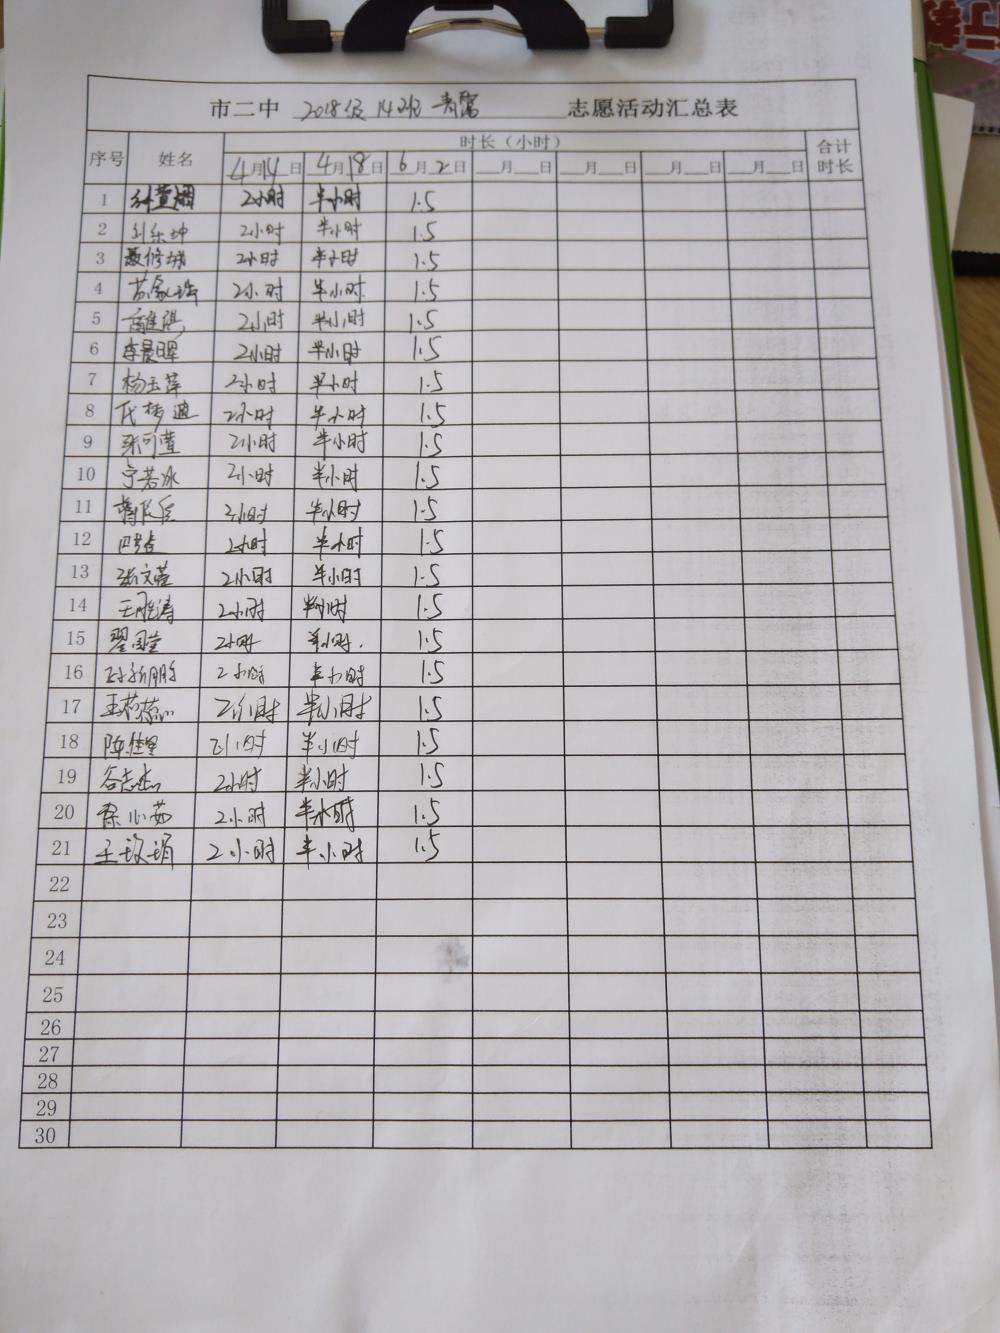 市二中 2018级14班青露 志愿活动汇总表
序号 姓名 时长（小时） 合计时长
4月14日 4月18日 6月2日 __月__日 __月__日 __月__日 __月__日
1 2小时 半小时 1.5
2 刘乐坤 2小时 半小时 1.5
3 聂修城 2小时 半小时 1.5
4 2小时 半小时 1.5
5 2小时 半小时 1.5
6 李晨晖 2小时 半小时 1.5
7 杨玉萍 2小时 半小时 1.5
8 代梦迪 2小时 半小时 1.5
9 张可萱 2小时 半小时 1.5
10 宁若冰 2小时 半小时 1.5
11 2小时 半小时 1.5
12 2小时 半小时 1.5
13 张文萱 2小时 半小时 1.5
14 王雅涛 2小时 半小时 1.5
15 2小时 半小时. 1.5
16 2小时 半小时 1.5
17 2小时 半小时 1.5
18 2小时 半小时 1.5
19 谷志杰 2小时 半小时 1.5
20 徐心茹 2小时 半小时 1.5
21 王玫娟 2小时 半小时 1.5
22
23
24
25
26
27
28
29
30